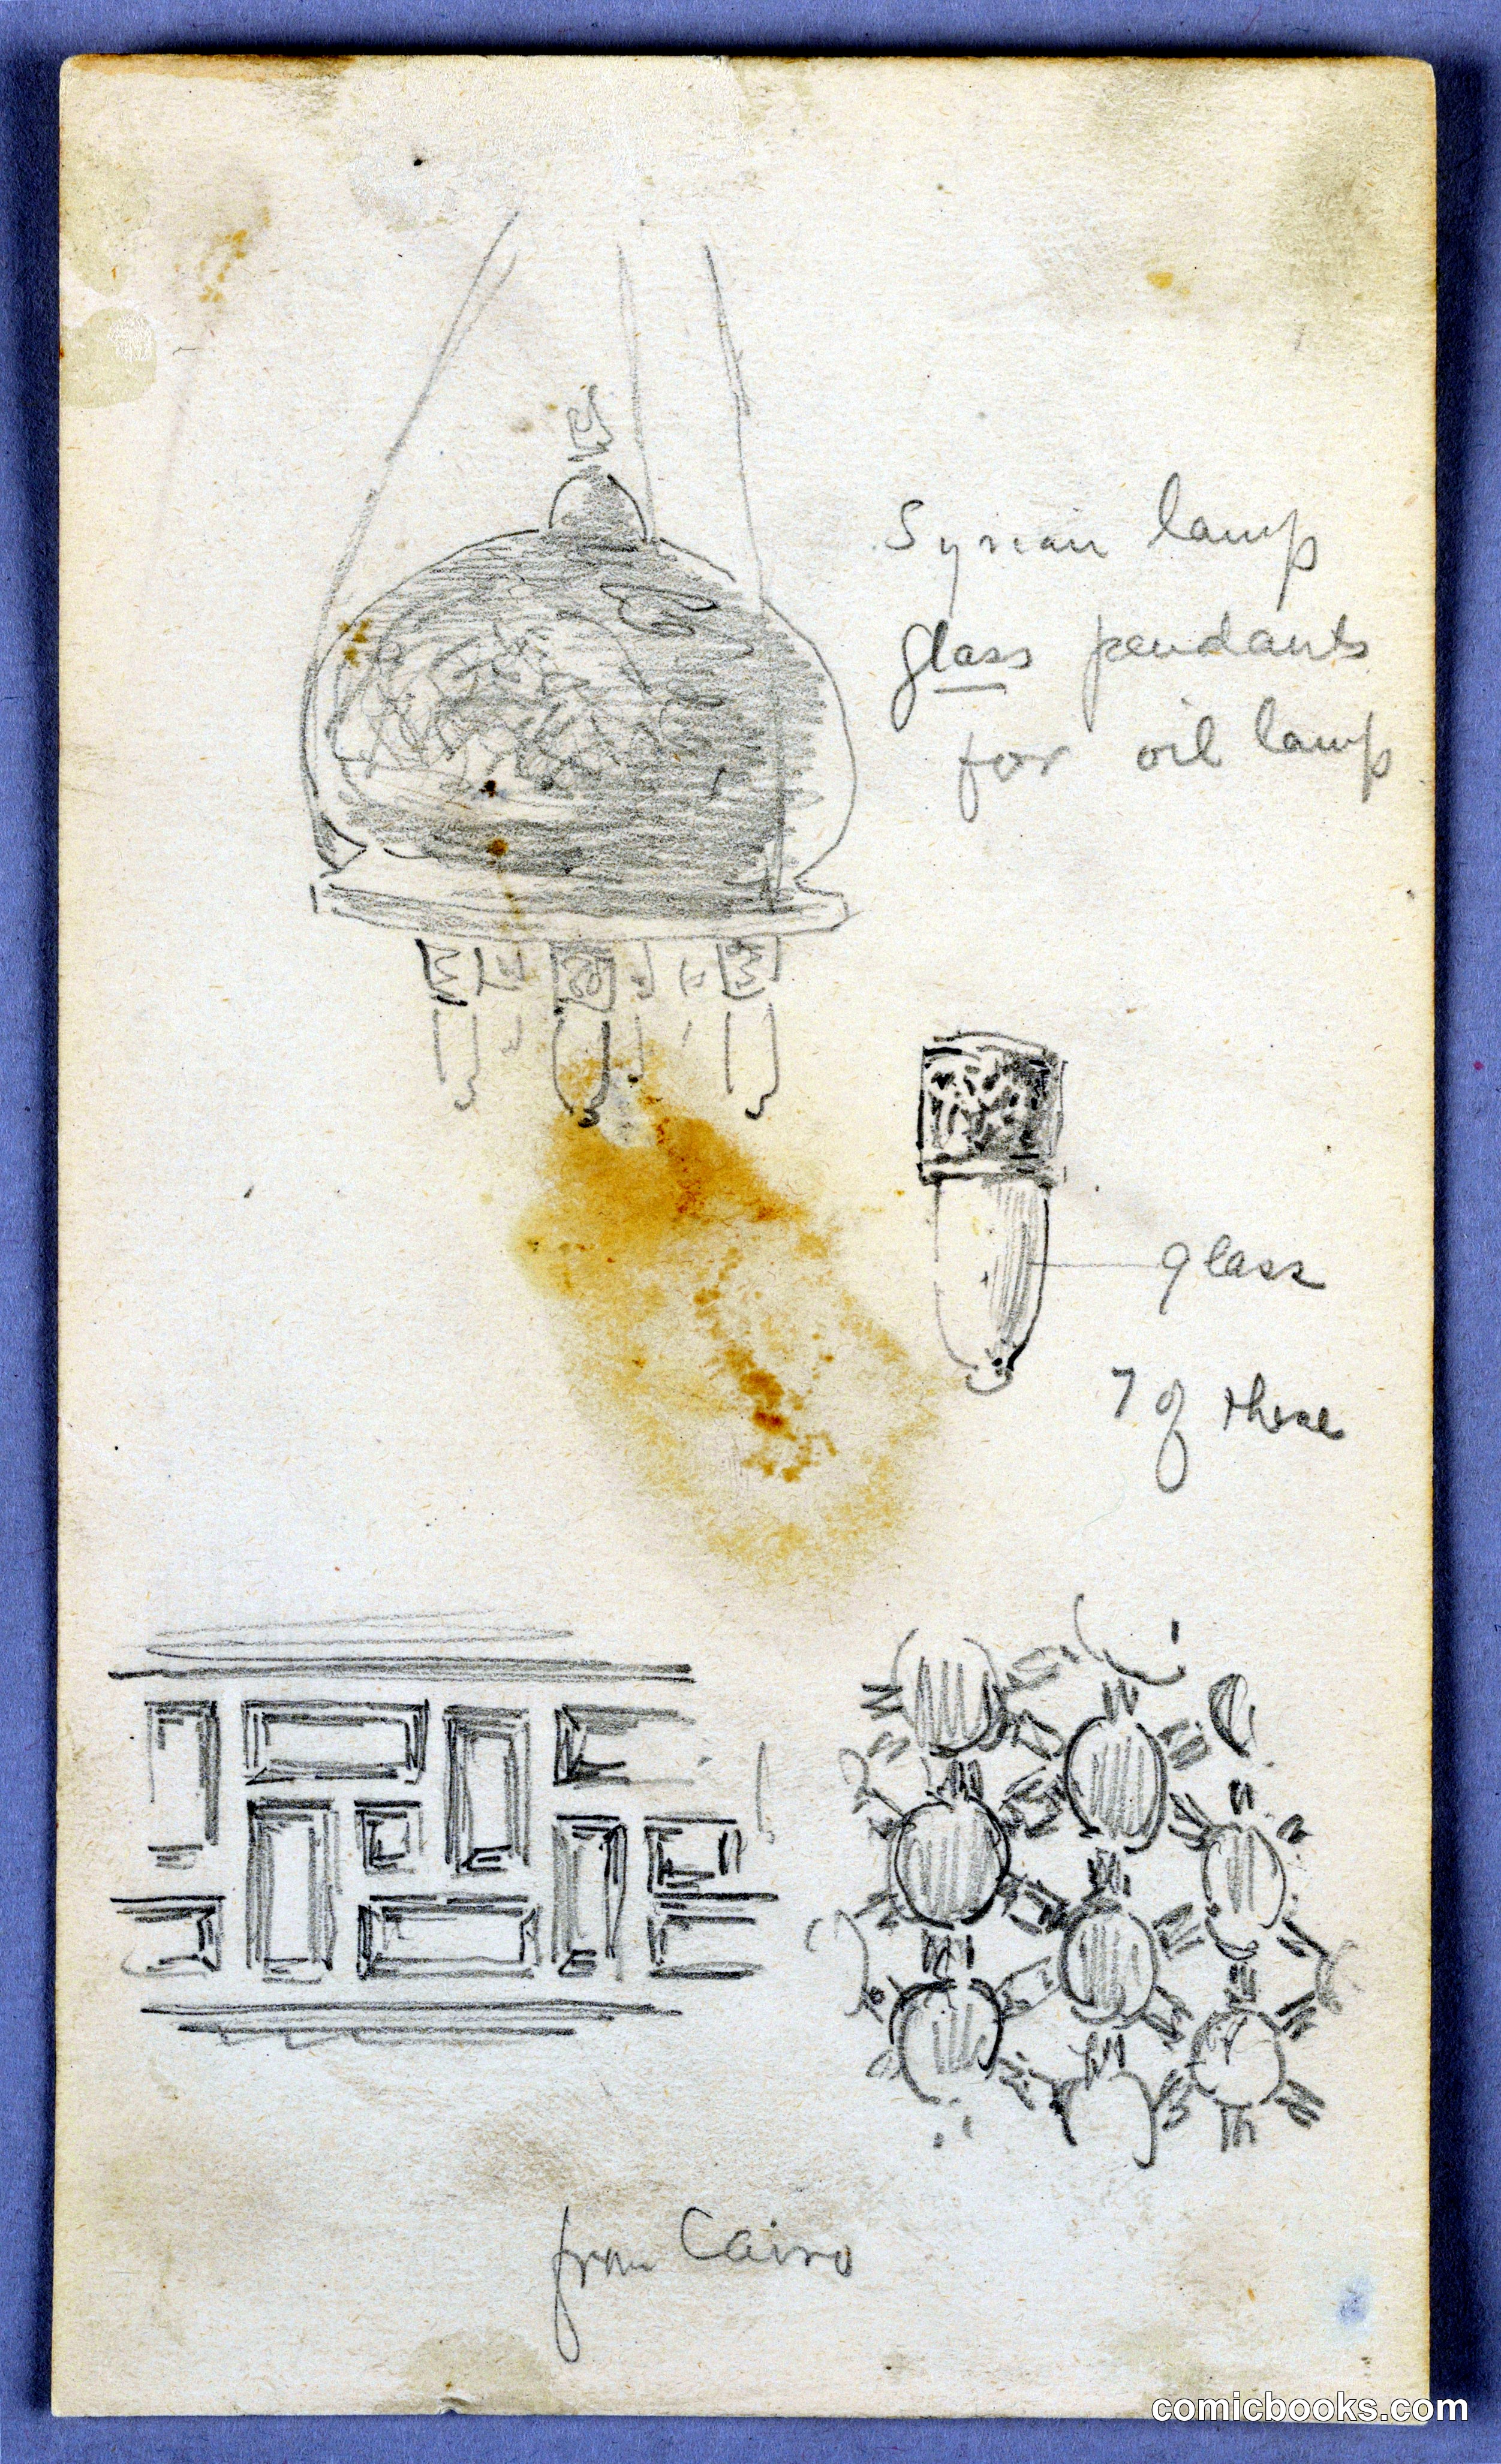 Syrian lamp
glass pendants
for oil lamp
glass
7 of these
from Cairo
comicbooks.com